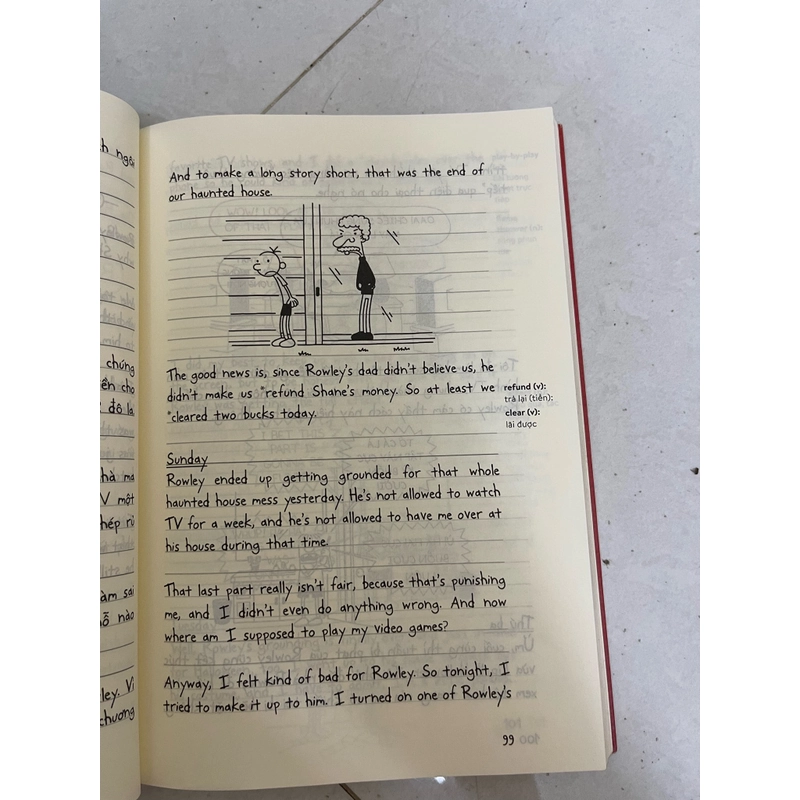 h ngôi
chứng
ền cho
đô la
hà ma
V một
hép rủ
àm sai
ỗ nào
ley. Vì
chương
And to make a long story short, that was the end of
our haunted house.
The good news is, since Rowley's dad didn't believe us, he
didn't make us *refund Shane's money. So at least we
*cleared two bucks today.
refund (v):
trả lại (tiền);
clear (v):
lãi được
Sunday
Rowley ended up getting grounded for that whole
haunted house mess yesterday. He's not allowed to watch
TV for a week, and he's not allowed to have me over at
his house during that time.
That last part really isn't fair, because that's punishing
me, and I didn't even do anything wrong. And now
where am I supposed to play my video games?
Anyway, I felt kind of bad for Rowley. So tonight, I
tried to make it up to him. I turned on one of Rowley's
99